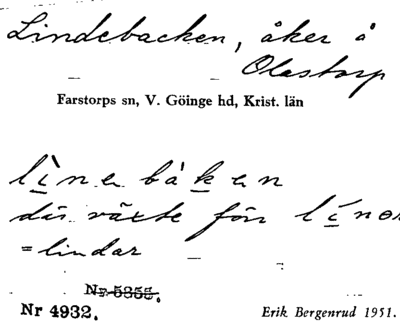 Lindebacken, åker å
Olastorp
Farstorps sn, V. Göinge hd, Krist. län
lìnebàken
där växte förr línor
= lindar
Nr 5355.
Nr 4932.
Erik Bergenrud 1951.